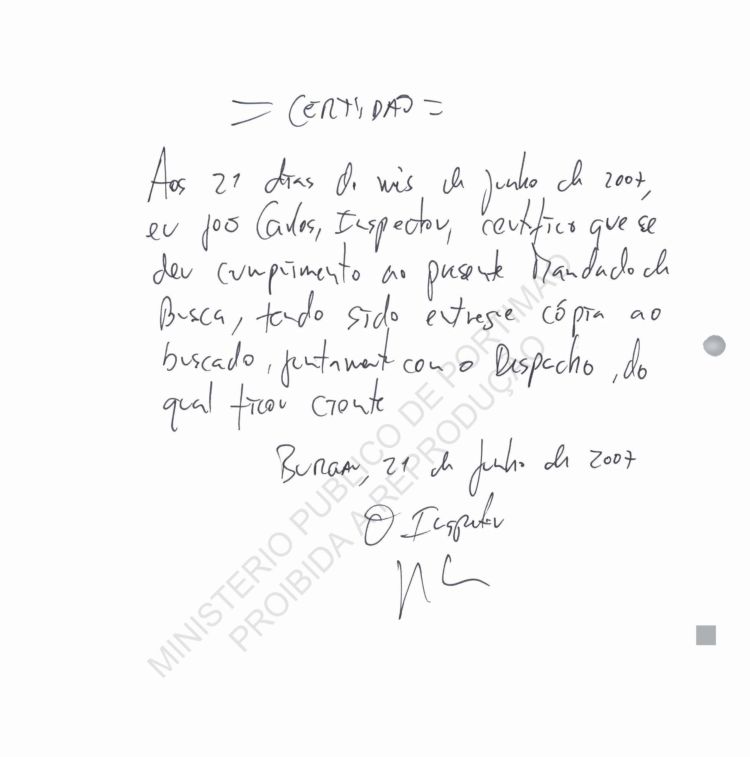 = CERTIDÃO =
Aos 21 dias do mês de Junho de 2007,
eu João Carlos, Inspector, certifico que se
deu cumprimento ao presente Mandado de
Busca, tendo sido entregue cópia ao
buscado, juntamente com o Despacho, do
qual ficou ciente
21 de Junho de 2007
O Inspector
MINISTERIO PUBLICO DE PORTIMAO
PROIBIDA A REPRODUÇÃO